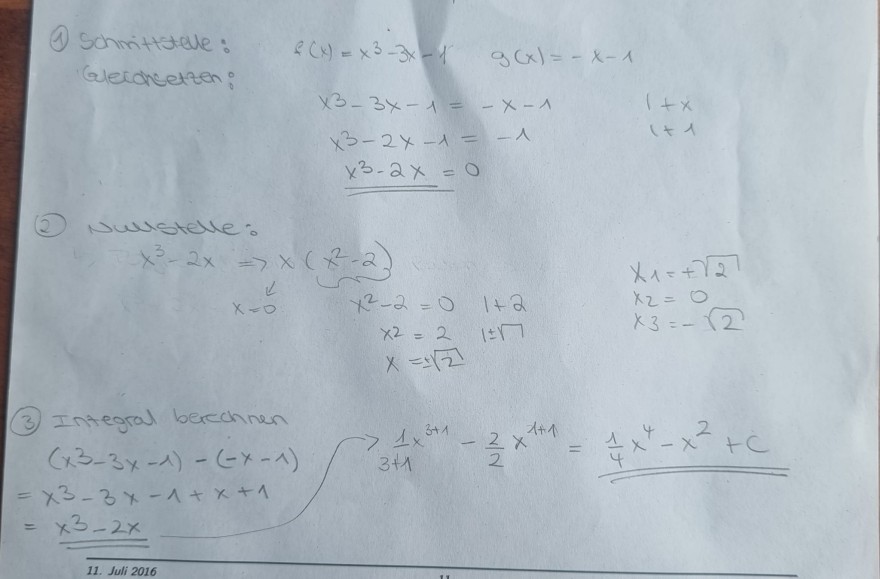 ① Schnittstelle: f(x) = x³ - 3x - 1 g(x) = - x - 1
Gleichsetzen:
x³ - 3x - 1 = - x - 1 | + x
x³ - 2x - 1 = - 1 | + 1
x³ - 2x = 0
② Nullstelle:
x³ - 2x => x (x² - 2)
x = 0
x² - 2 = 0 | + 2
x2 = 2 | ±√
x = ±√2
x1 = +√2
x2 = 0
x3 = - √2
③ Integral berechnen
(x³ - 3x - 1) - (- x - 1)
= x³ - 3x - 1 + x + 1
= x³ - 2x
→ 1/(3+1) x³⁺¹ - 2/2 x¹⁺¹ = 1/4 x⁴ - x² + C
11. Juli 2016